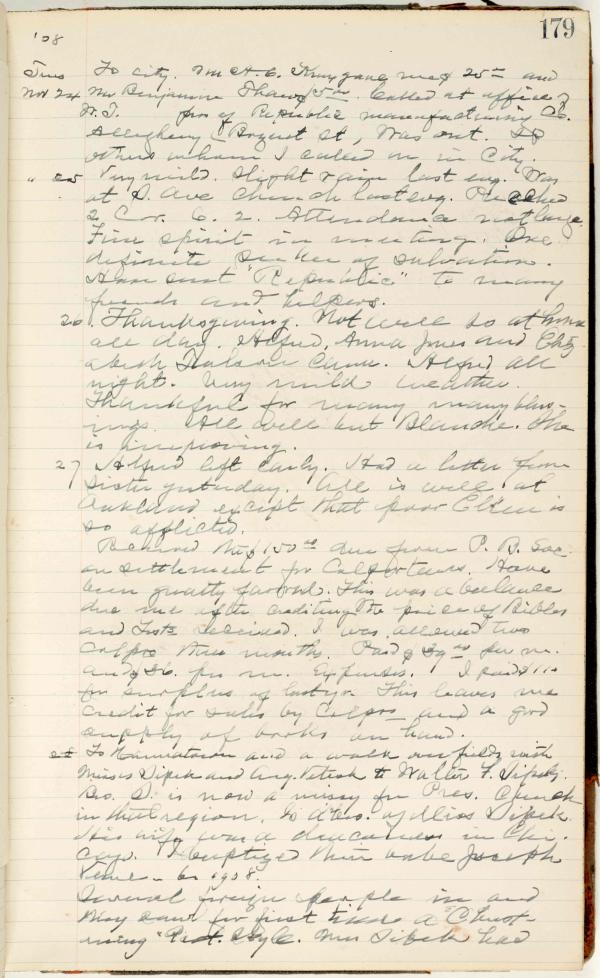 179
'08
Tues To city. Mr H. C. gave me $25 00 and
Nov 24 Mr Benjamin Thaw $5 00. Called at office of
W. J. pres of Republic manufacturing Co.
Allegheny Boquet St, Was out. So
others whom I called on in City.
" 25 Very mild. Slight rain last evg. Was
at S. Ave Church last evg. Preached
2 Cor. 6. 2. Attendance not large.
Fine spirit in meeting. One
definite seeker of salvation.
Have sent "Republic" to many
friends and helpers.
26. Thanksgiving. Not well so at home
all day. Alfred, Anna Jones and Eliz-
abeth came. Alfred all
night. Very mild weather.
Thankful for many many bless-
ings. All well but Blanche. She
is improving.
27 Alfred left early. Had a letter from
Sister yesterday. All is well at
Oakland except that poor Ellen is
so afflicted.
Received the $150 00 due from P. B. Soc.
on settlement for Colporteurs. Have
been greatly favored. This was a balance
due me after crediting the price of Bibles
and Tests received. I was allowed two
colprs three months. Paid $ per m.
and $36. per m. Expenses. I paid
for surplus of last yr. This leaves me
credit for sales by Colprs and a good
supply of books on hand.
28 To and a walk over fields with
Misses Sipek and to Walter F.
Bro. S. is now a missy for Pres. Church
in that region.
His wife was a deaconess in Chi-
cago. I baptized their babe Joseph
6 1908.
Several foreign people in and
they saw for first time a "Christ-
ening" Prot. Style. Miss Sibek had